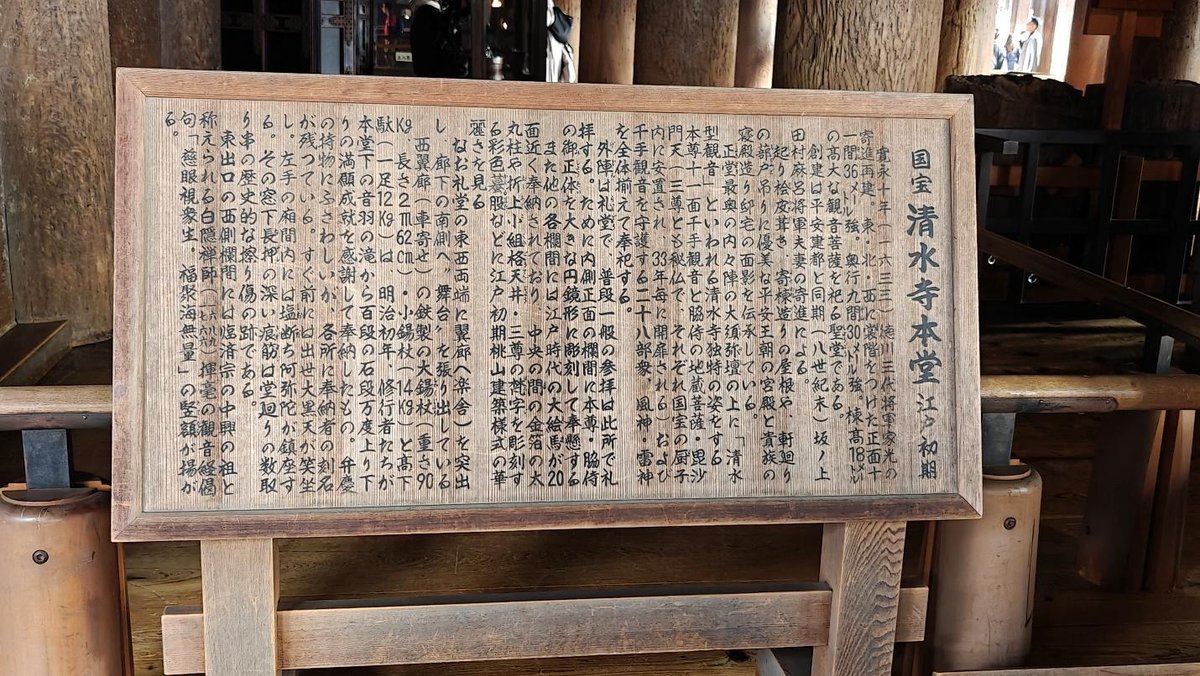 国宝 清水寺本堂 江戸初期
寛永十年(一六三三)徳川三代将軍家光の
寄進再建。東・北・西に裳階をつけた正面十
一間36メートル強。奥行九間30メートル強。棟高18メートル
の高大な観音菩薩を祀る聖堂である。
創建は平安建都と同期(八世紀末)坂ノ上
田村麻呂将軍夫妻の寄進による。
起り桧皮葺き、寄棟造りの屋根や、軒廻り
の蔀戸吊りに優美な平安王朝の宮殿と貴族の
寝殿造り邸宅の面影を伝承している。
正堂最奥の内々陣の大須弥壇の上に「清水
型観音」といわれる清水寺独特の姿をする
本尊十一面千手観音と脇侍の地蔵菩薩・毘沙
門天(三尊とも秘仏で、それぞれ国宝の厨子
内に安置され、33年毎に開扉される)および
千手観音を守護する二十八部衆、風神・雷神
を全体揃えて奉祀する。
外陣は礼堂で、普段一般の参拝は此所で礼
拝する。ために内側正面の欄間に本尊・脇侍
の御正体を大きな円鏡形に彫刻して奉懸する
また他の各欄間には江戸時代の大絵馬が20
面近く奉納されており、中央の間の金箔の太
丸柱や折上小組格天井・三尊の梵字を彫刻す
る彩色蟇股などに江戸初期桃山建築様式の華
麗さを見る
なお礼堂の東西両端に翼廊へ楽舎)を突出
し、廊下の南側へ"舞台"を張り出している
西翼廊(車寄せ)の鉄製の大錫杖(重さ90
Kg、長さ2m62cm)・小錫杖(14Kg)と高下
駄(一足12Kg)は、明治初年、修行者たちが
本堂下の音羽の滝から百段の石段万度上り下
りの満願成就を感謝して奉納したもの。弁慶
の持物にふさわしいが、各所に奉納者の刻名
が残っている。すぐ前には出世大黒天が笑坐
し、左手の廂間内には塩断ち阿弥陀が鎮座す
る。その窓下長押の深い痕筋は堂廻りの数取
り串の歴史的な擦り傷の跡である。
東出口の西側欄間には臨済宗の中興の祖と
称えられる白隠禅師()揮毫の観音経偈
句「慈眼視衆生、福聚海無量」の竪額が揚が
る。